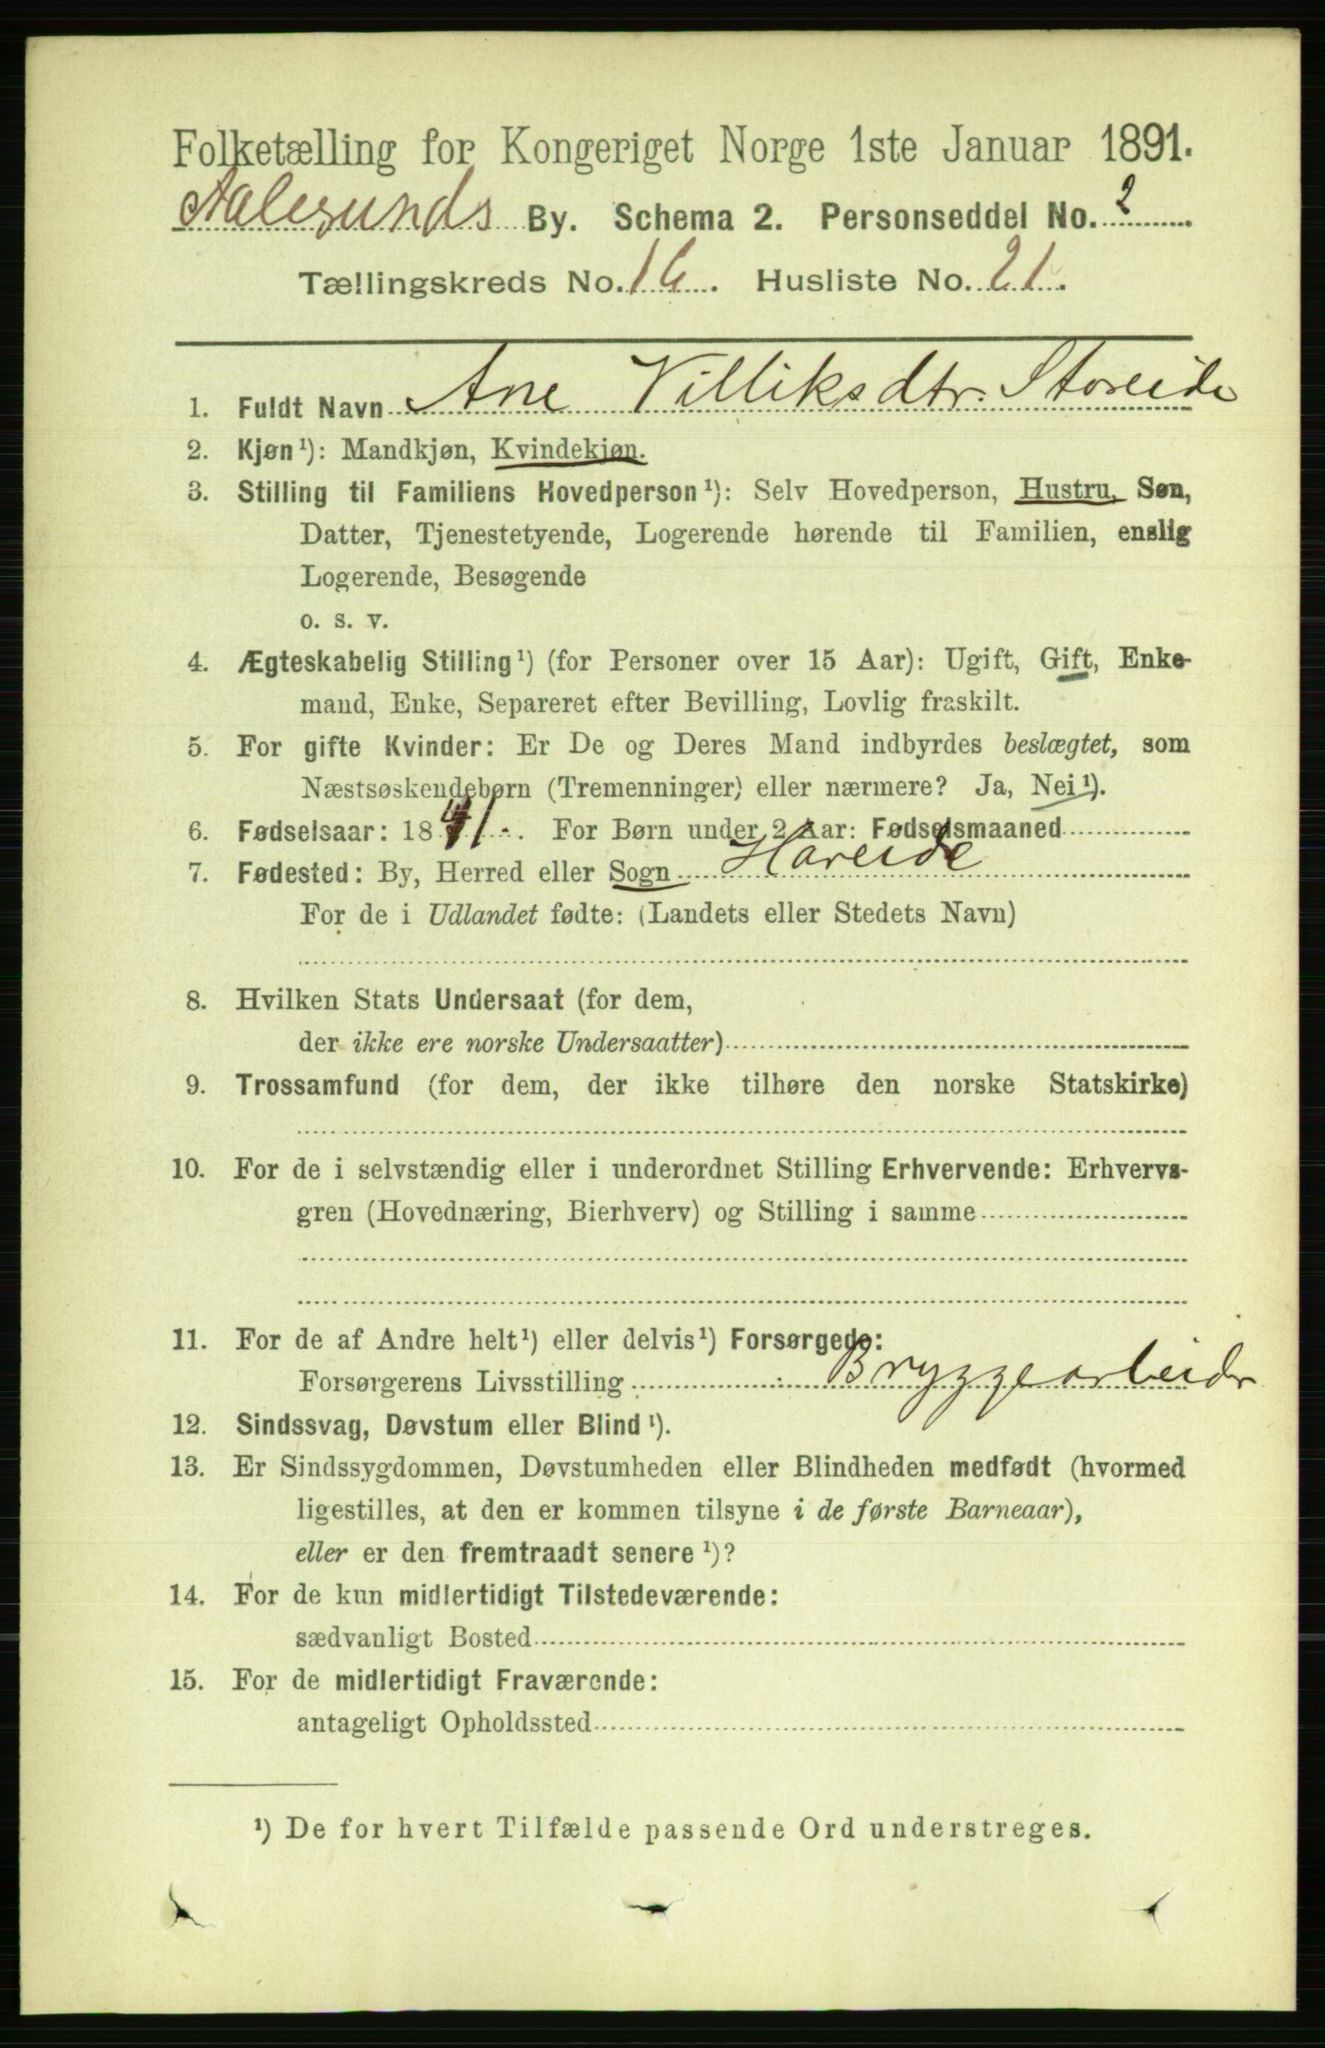 Folketælling for Kongeriget Norge 1ste Januar 1891.
Aalesunds By. Schema 2. Personseddel No. 2
Tællingskreds No. 16. Husliste No. 21.
1. Fuldt Navn Ane Villiksdtr. Storeide
2. Kjøn¹): Mandkjøn, Kvindekjøn.
3. Stilling til Familiens Hovedperson¹): Selv Hovedperson, Hustru, Søn,
Datter, Tjenestetyende, Logerende hørende til Familien, enslig
Logerende, Besøgende
o. s. v.
4. Ægteskabelig Stilling¹) (for Personer over 15 Aar): Ugift, Gift, Enke-
mand, Enke, Separeret efter Bevilling, Lovlig fraskilt.
5. For gifte Kvinder: Er De og Deres Mand indbyrdes beslægtet, som
Næstsøskendebørn (Tremenninger) eller nærmere? Ja, Nei¹).
6. Fødselsaar: 1841. For Børn under 2 Aar: Fødselsmaaned
7. Fødested: By, Herred eller Sogn Hareide
For de i Udlandet fødte: (Landets eller Stedets Navn)
8. Hvilken Stats Undersaat (for dem,
der ikke ere norske Undersaatter)
9. Trossamfund (for dem, der ikke tilhøre den norske Statskirke)
10. For de i selvstændig eller i underordnet Stilling Erhvervende: Erhvervs-
gren (Hovednæring, Bierhverv) og Stilling i samme
11. For de af Andre helt¹) eller delvis¹) Forsørgede:
Forsørgerens Livsstilling Bryggearbeider
12. Sindssvag, Døvstum eller Blind¹).
13. Er Sindssygdommen, Døvstumheden eller Blindheden medfødt (hvormed
ligestilles, at den er kommen tilsyne i de første Barneaar),
eller er den fremtraadt senere¹)?
14. For de kun midlertidigt Tilstedeværende:
sædvanligt Bosted
15. For de midlertidigt Fraværende:
antageligt Opholdssted
¹) De for hvert Tilfælde passende Ord understreges.